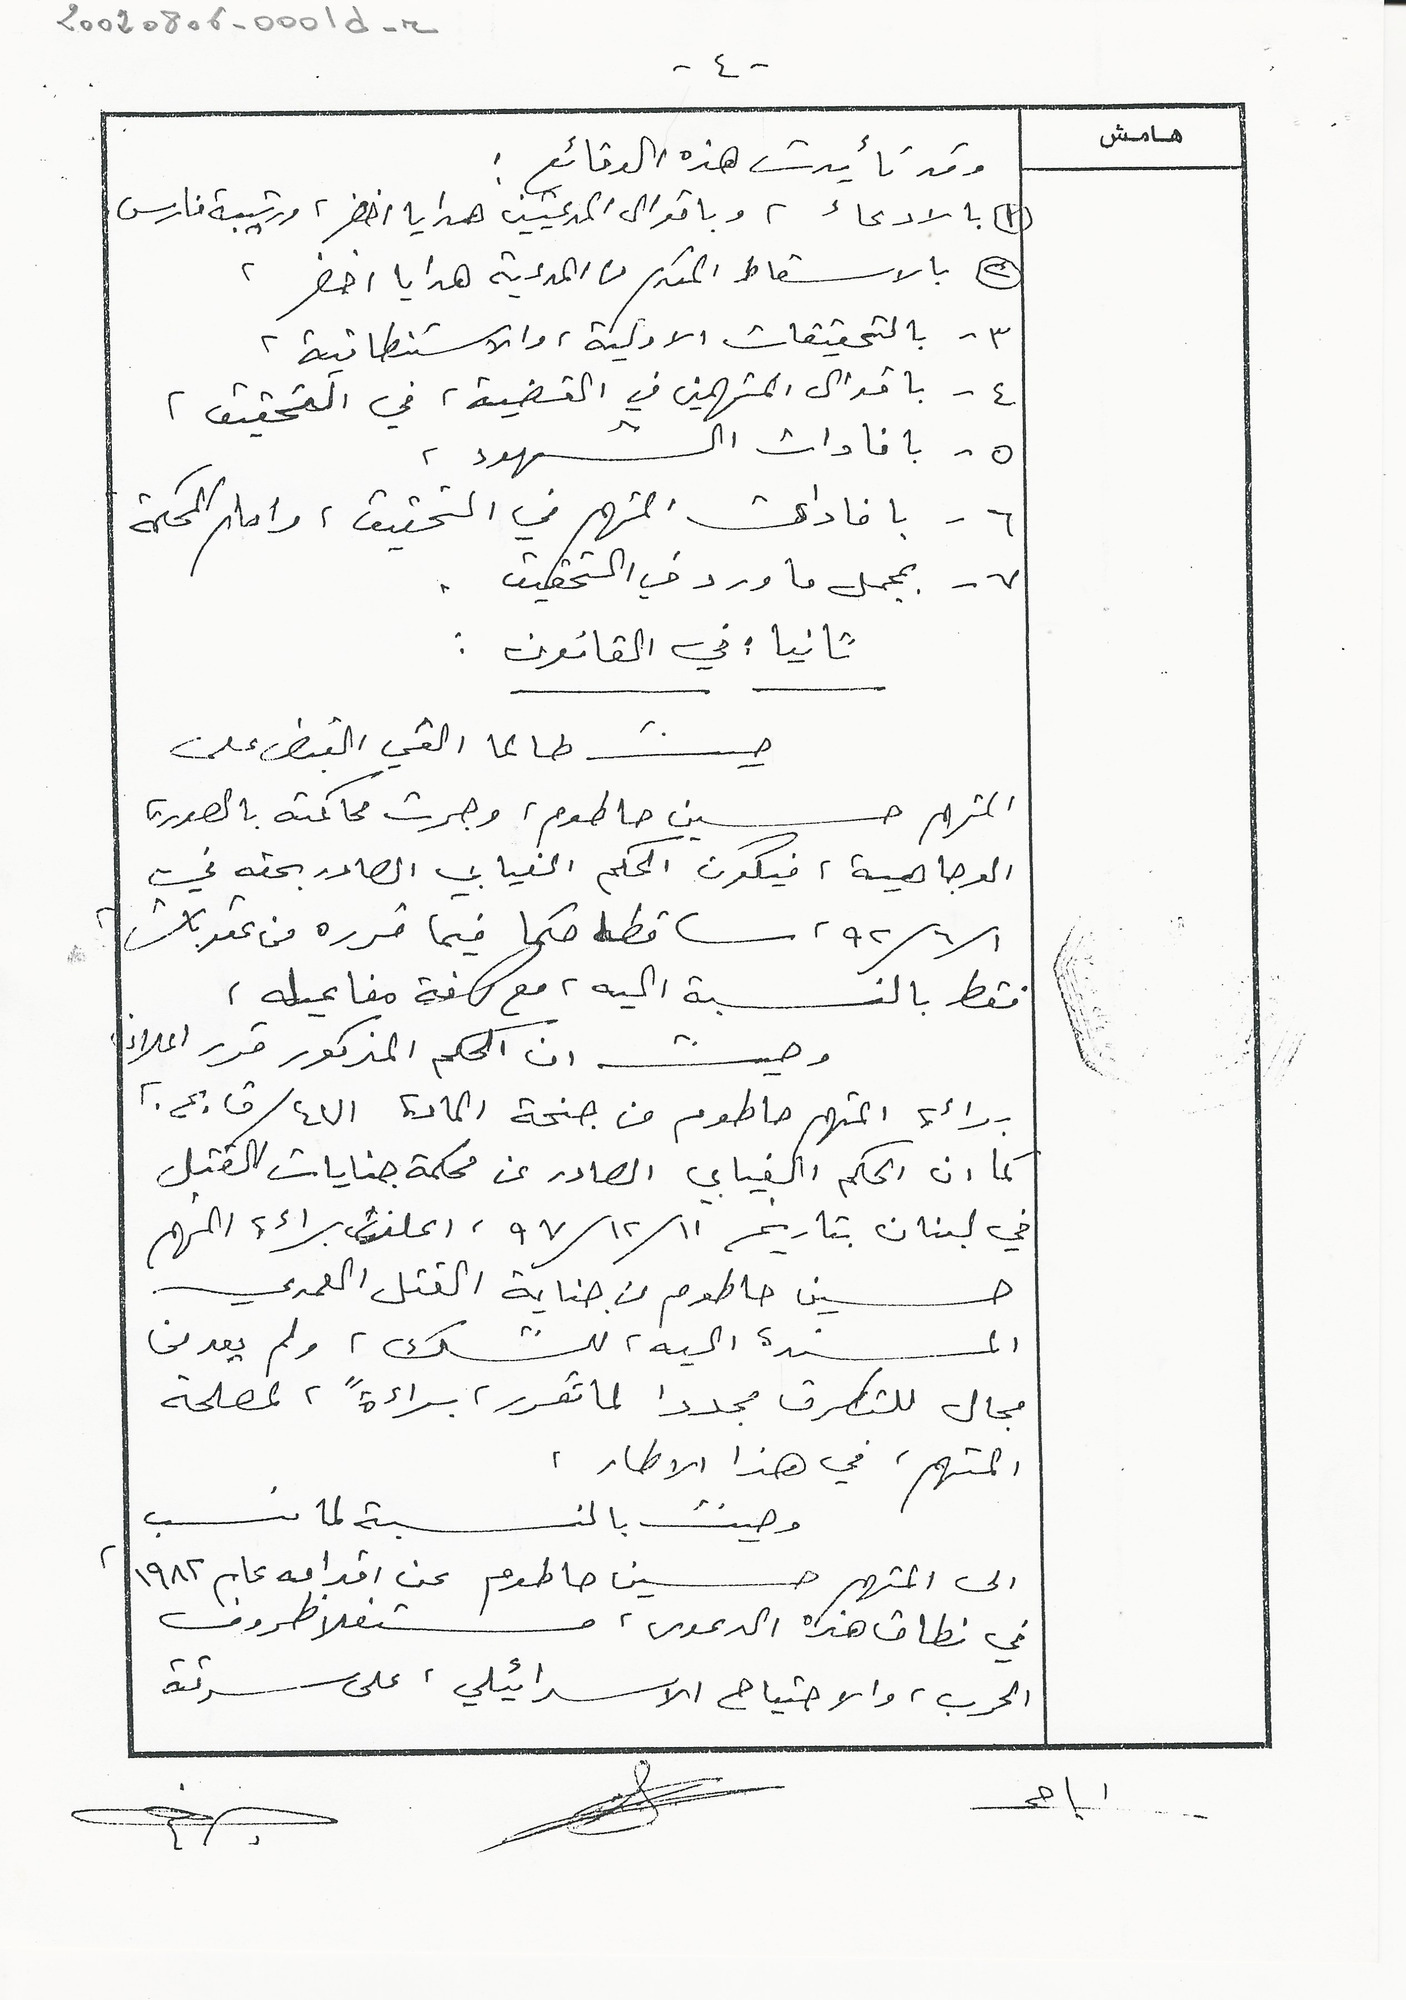 20020806-0001d-r
- ٤ -
هامش
وقد تأيدت هذه الوقائع :
١ بالادعاء ، وباقوال المدعيتين هدايا اخضر ، ورتيبة فارس
٢ بالاسقاط المقدم من المدعية هدايا اخضر ،
٣ - بالتحقيقات الاولية ، والاستنطاقية ،
٤ - باقوال المتهمين في القضية ، في التحقيق ،
٥ - بافادات الشهود ،
٦ - بافادات المتهم في التحقيق ، وامام المحكمة
٧ - بمجمل ما ورد في التحقيق .
ثانيا : في القانون :
حيث طالما القي القبض على
المتهم حسين حاطوم ، وجرت محاكمته بالصورة
الوجاهية ، فيكون الحكم الغيابي الصادر بحقه في
١/٦/٩٢ ، ساقطا حكما فيما قرره من عقوبات ،
فقط بالنسبة اليه ، مع كافة مفاعيله ،
وحيث ان الحكم المذكور قرر اعلان
براءة المتهم حاطوم من جنحة المادة ٤٧١/ق.ع. ،
كما ان الحكم الغيابي الصادر عن محكمة جنايات القتل
في لبنان بتاريخ ١١/١٢/٩٧ ، اعلنت براءة المتهم
حسين حاطوم من جناية القتل العمدي
المسندة اليه ، للشك ، ولم يعد من
مجال للتطرق مجددا لما تقرر ، براءةً ، لمصلحة
المتهم ، في هذا الاطار ،
وحيث بالنسبة لما نسب
الى المتهم حسين حاطوم عن اقدامه عام ١٩٨٢ ،
في نطاق هذه الدعوى ، مستغلا ظروف
الحرب ، والاجتياح الاسرائيلي ، على سرقة